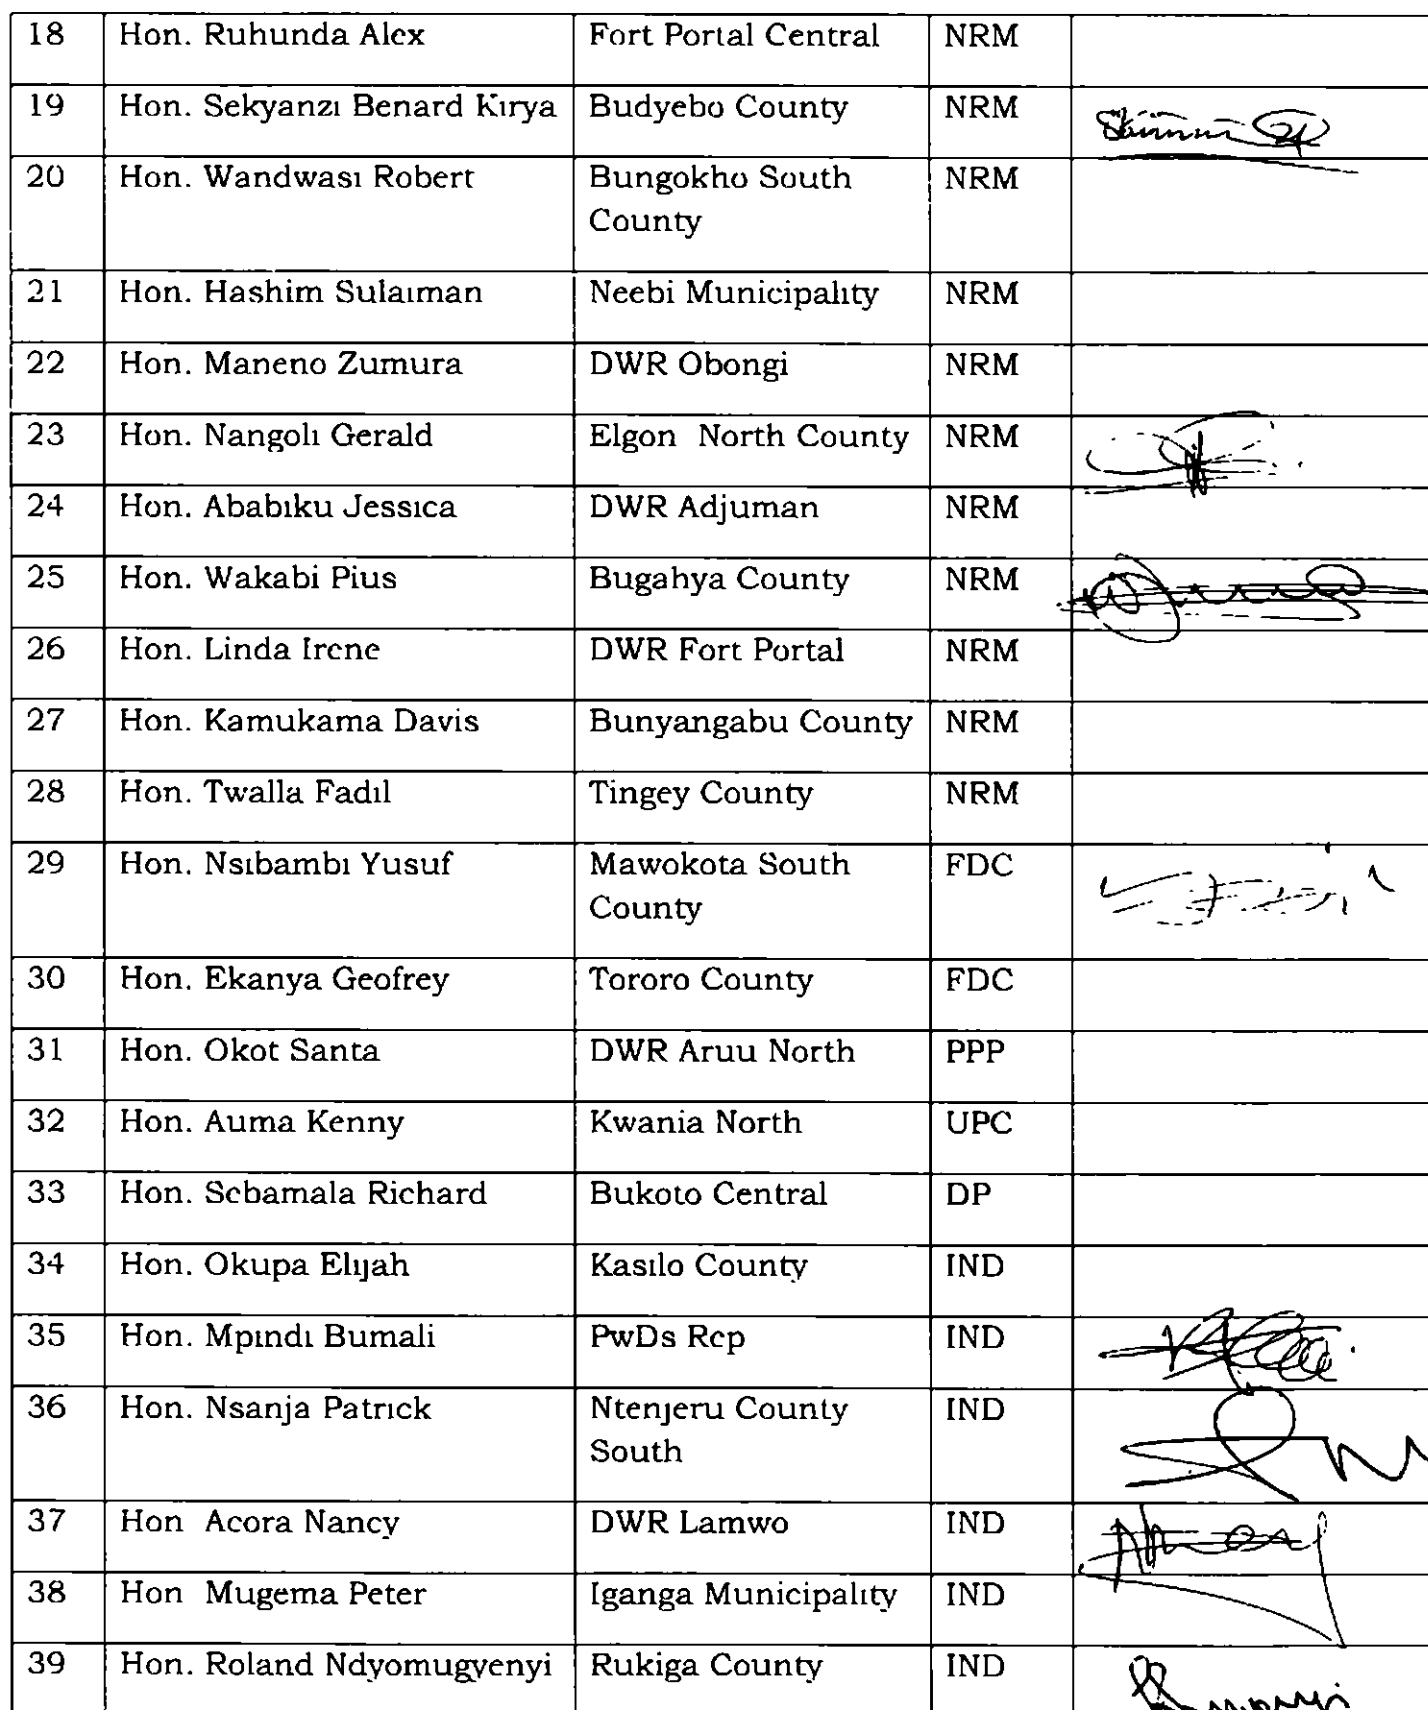 18 Hon. Ruhunda Alex Fort Portal Central NRM
19 Hon. Sekyanzi Benard Kirya Budyebo County NRM
20 Hon. Wandwasi Robert Bungokho South NRM
County
21 Hon. Hashim Sulaiman Neebi Municipality NRM
22 Hon. Maneno Zumura DWR Obongi NRM
23 Hon. Nangoli Gerald Elgon North County NRM
24 Hon. Ababiku Jessica DWR Adjuman NRM
25 Hon. Wakabi Pius Bugahya County NRM
26 Hon. Linda Irene DWR Fort Portal NRM
27 Hon. Kamukama Davis Bunyangabu County NRM
28 Hon. Twalla Fadil Tingey County NRM
29 Hon. Nsibambi Yusuf Mawokota South FDC
County
30 Hon. Ekanya Geofrey Tororo County FDC
31 Hon. Okot Santa DWR Aruu North PPP
32 Hon. Auma Kenny Kwania North UPC
33 Hon. Sebamala Richard Bukoto Central DP
34 Hon. Okupa Elijah Kasilo County IND
35 Hon. Mpindi Bumali PwDs Rep IND
36 Hon. Nsanja Patrick Ntenjeru County IND
South
37 Hon Acora Nancy DWR Lamwo IND
38 Hon Mugema Peter Iganga Municipality IND
39 Hon. Roland Ndyomugyenyi Rukiga County IND